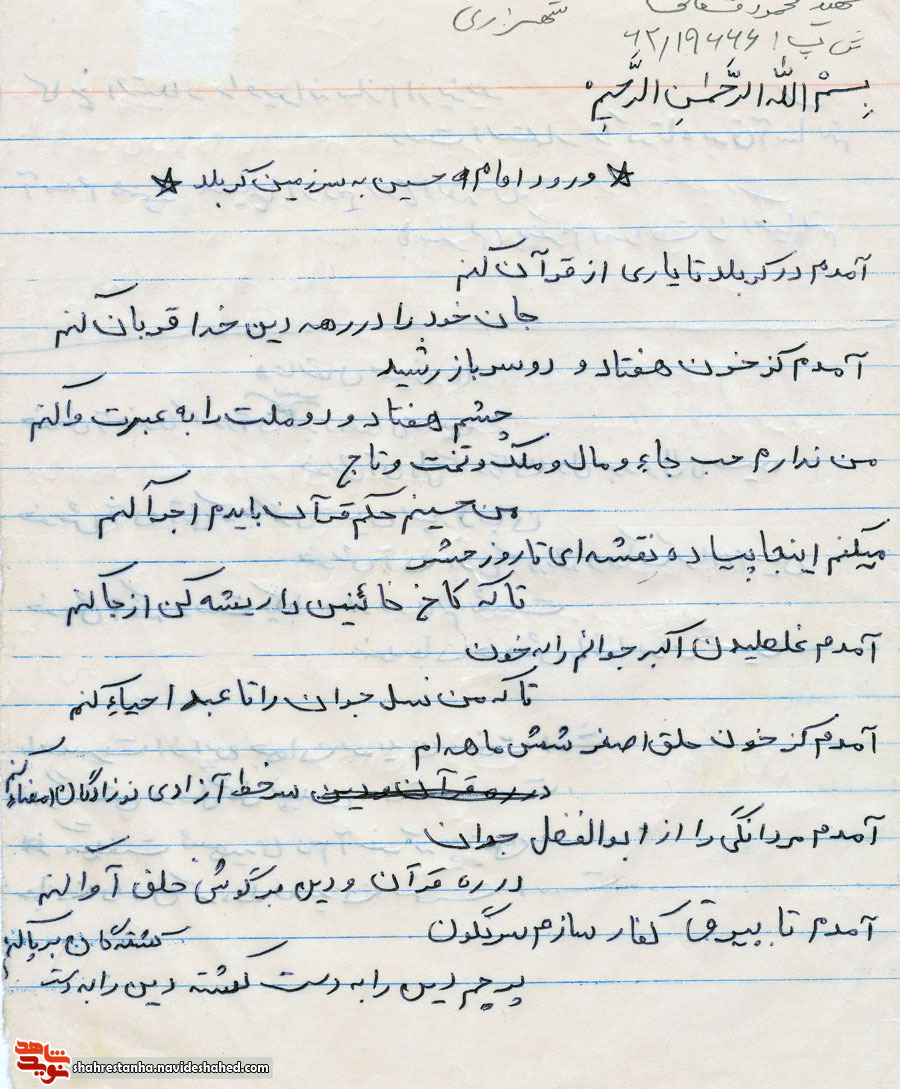 شهید محمود
شهرری
ش پ ۶۲/۱۹۶۶۶۱
بِسْمِ اللهِ الرَّحْمٰنِ الرَّحیمِ
☆ ورود امام حسین به سرزمین کربلا ☆
آمدم در کربلا تا یاری از قرآن کنم
جان خود را در رهه دین خدا قربان کنم
آمدم کز خون هفتاد و دو سرباز رشید
چشم هفتاد و دو ملت را به عبرت وا کنم
من ندارم حب جاء و مال و ملک و تخت و تاج
من حسینم حکم قرآن بایدم اجرا کنم
میکنم اینجا پیاده نقشه ای تا روز حشر
تا که کاخ خائنین را ریشه کن از جا کنم
آمدم غلطیدن اکبر جوانم را به خون
تا که من نسل جوان را تا عبد احیاء کنم
آمدم کز خون حلق اصغر شش ماهه ام
در ره قرآن و دین سر خط آزادی نوزادگان امضاء کنم
آمدم مردانگی را از ابوالفضل جوان
در ره قرآن و دین بر گوش خلق آوا کنم
آمدم تا بیرق کفار سازم سرنگون
پرچم دین را به دست کشته دین را به دست
کشتگان بر پا کنم
شاهد
نوید
shahrestanha.navideshahed.com